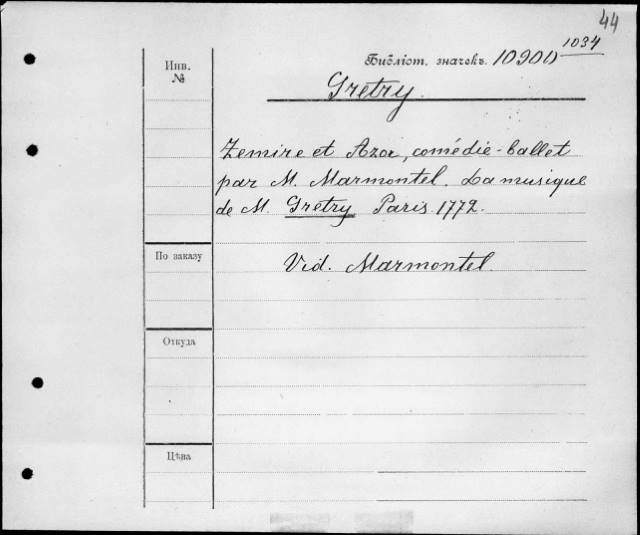 44
Инв. №
Библіот. значекъ. 10900 1034
Gretry.
Zemire et Azor, comédie-ballet
par M. Marmontel. La musique
de M. Gretry Paris. 1772.
По заказу
Vid. Marmontel.
Откуда
Цѣна